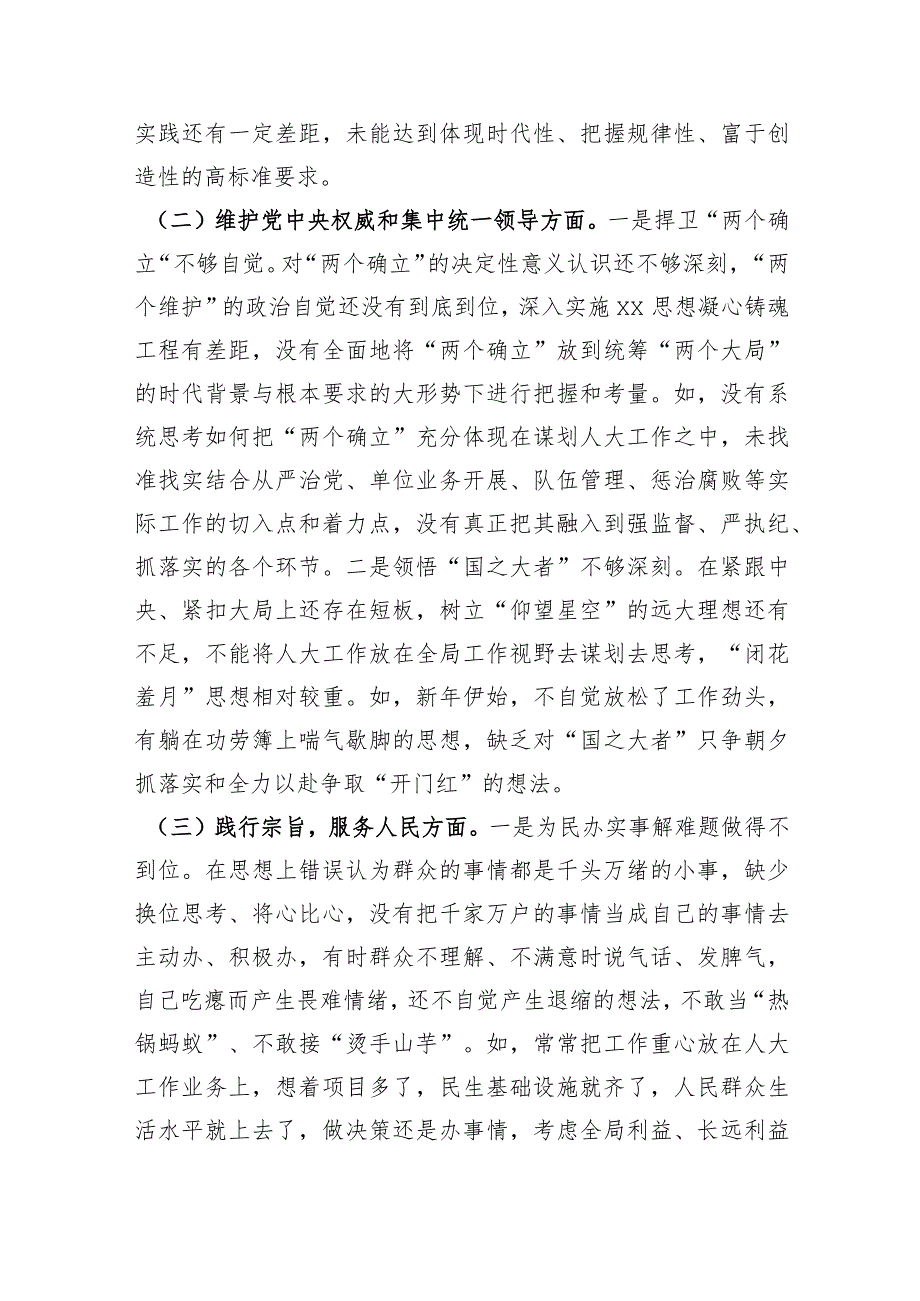 实践还有一定差距，未能达到体现时代性、把握规律性、富于创
造性的高标准要求。
（二）维护党中央权威和集中统一领导方面。一是捍卫“两个确
立“不够自觉。对“两个确立”的决定性意义认识还不够深刻，“两
个维护”的政治自觉还没有到底到位，深入实施 xx 思想凝心铸魂
工程有差距，没有全面地将“两个确立”放到统筹“两个大局”
的时代背景与根本要求的大形势下进行把握和考量。如，没有系
统思考如何把“两个确立”充分体现在谋划人大工作之中，未找
准找实结合从严治党、单位业务开展、队伍管理、惩治腐败等实
际工作的切入点和着力点，没有真正把其融入到强监督、严执纪、
抓落实的各个环节。二是领悟“国之大者”不够深刻。在紧跟中
央、紧扣大局上还存在短板，树立“仰望星空”的远大理想还有
不足，不能将人大工作放在全局工作视野去谋划去思考，“闭花
羞月”思想相对较重。如，新年伊始，不自觉放松了工作劲头，
有躺在功劳簿上喘气歇脚的思想，缺乏对“国之大者”只争朝夕
抓落实和全力以赴争取“开门红”的想法。
（三）践行宗旨，服务人民方面。一是为民办实事解难题做得不
到位。在思想上错误认为群众的事情都是千头万绪的小事，缺少
换位思考、将心比心，没有把千家万户的事情当成自己的事情去
主动办、积极办，有时群众不理解、不满意时说气话、发脾气，
自己吃瘪而产生畏难情绪，还不自觉产生退缩的想法，不敢当“热
锅蚂蚁”、不敢接“烫手山芋”。如，常常把工作重心放在人大
工作业务上，想着项目多了，民生基础设施就齐了，人民群众生
活水平就上去了，做决策还是办事情，考虑全局利益、长远利益